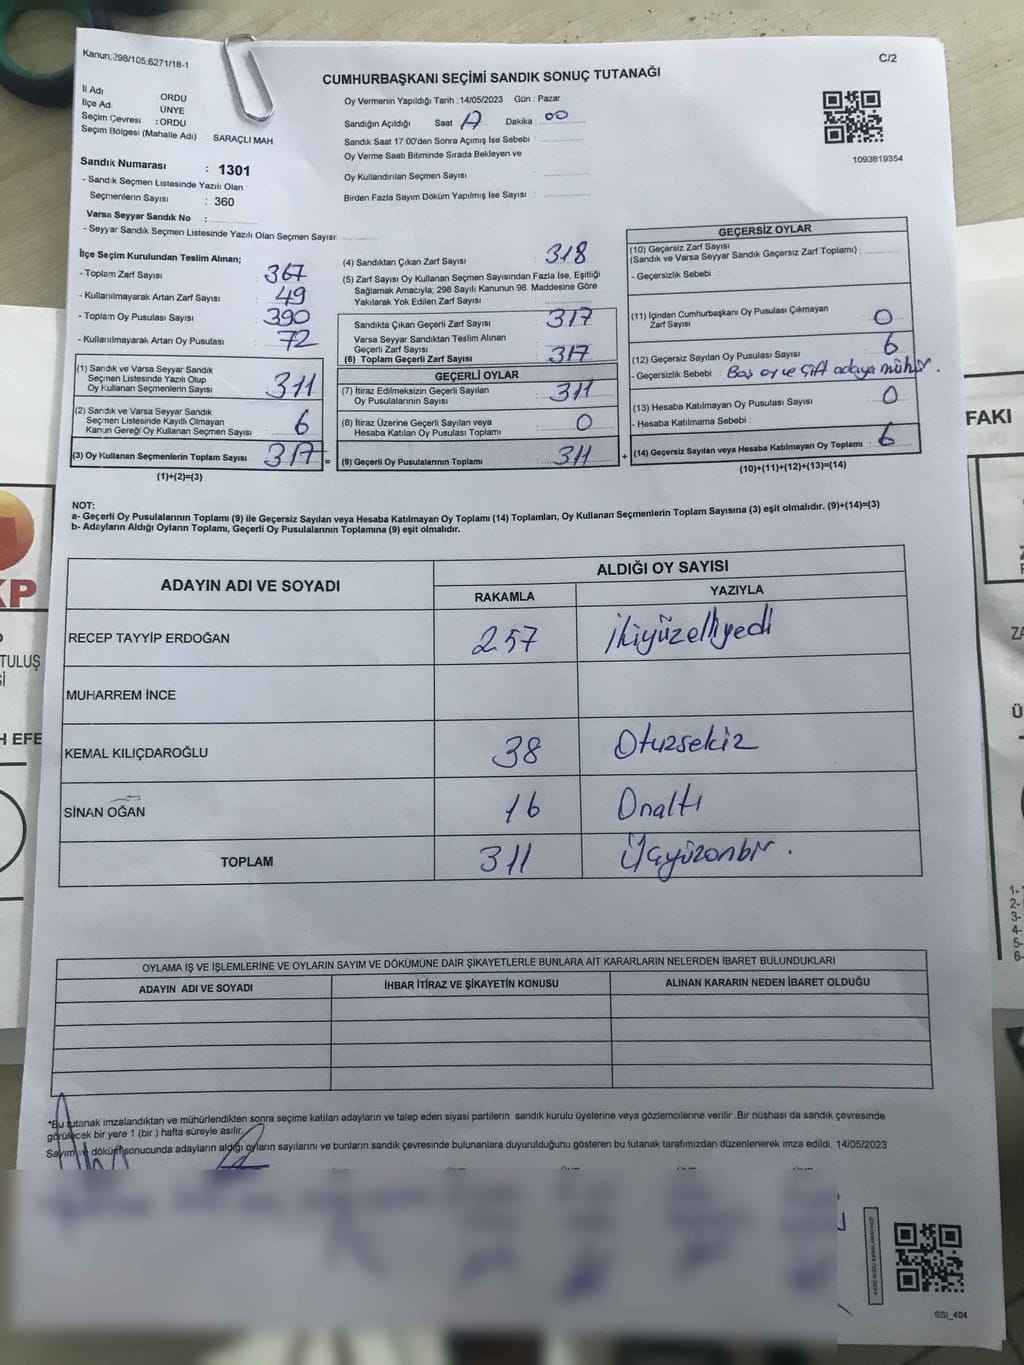 Kanun,298/105,6271/18-1
C/2
CUMHURBAŞKANI SEÇİMİ SANDIK SONUÇ TUTANAĞI
İl Adı : ORDU
İlçe Ad : ÜNYE
Seçim Çevresi : ORDU
Seçim Bölgesi (Mahalle Adı) SARAÇLI MAH.
Sandık Numarası : 1301
- Sandık Seçmen Listesinde Yazılı Olan
Seçmenlerin Sayısı : 360
Varsa Seyyar Sandık No :
- Seyyar Sandık Seçmen Listesinde Yazılı Olan Seçmen Sayısı:
Oy Vermenin Yapıldığı Tarih : 14/05/2023 Gün : Pazar
Sandığın Açıldığı Saat 17 Dakika : 00
Sandık Saat 17:00'den Sonra Açımış İse Sebebi :
Oy Verme Saati Bitiminde Sırada Bekleyen ve
Oy Kullandırılan Seçmen Sayısı :
Birden Fazla Sayım Döküm Yapılmış İse Sayısı :
1093819354
İlçe Seçim Kurulundan Teslim Alınan;
- Toplam Zarf Sayısı : 367
- Kullanılmayarak Artan Zarf Sayısı : 49
- Toplam Oy Pusulası Sayısı : 390
- Kullanılmayarak Artan Oy Pusulası : 72
(1) Sandık ve Varsa Seyyar Sandık
Seçmen Listesinde Yazılı Olup
Oy Kullanan Seçmenlerin Sayısı : 311
(2) Sandık ve Varsa Seyyar Sandık
Seçmen Listesinde Kayıtlı Olmayan
Kanun Gereği Oy Kullanan Seçmen Sayısı : 6
(3) Oy Kullanan Seçmenlerin Toplam Sayısı : 317
(1)+(2)=(3)
(4) Sandıktan Çıkan Zarf Sayısı : 318
(5) Zarf Sayısı Oy Kullanan Seçmen Sayısından Fazla İse, Eşitliği
Sağlamak Amacıyla; 298 Sayılı Kanunun 98. Maddesine Göre
Yakılarak Yok Edilen Zarf Sayısı :
Sandıkta Çıkan Geçerli Zarf Sayısı : 317
Varsa Seyyar Sandıktan Teslim Alınan
Geçerli Zarf Sayısı :
(6) Toplam Geçerli Zarf Sayısı : 317
GEÇERLİ OYLAR
(7) İtiraz Edilmeksizin Geçerli Sayılan
Oy Pusulalarının Sayısı : 311
(8) İtiraz Üzerine Geçerli Sayılan veya
Hesaba Katılan Oy Pusulası Toplamı : 0
= (9) Geçerli Oy Pusulalarının Toplamı : 311
GEÇERSİZ OYLAR
(10) Geçersiz Zarf Sayısı
(Sandık ve Varsa Seyyar Sandık Geçersiz Zarf Toplamı) :
- Geçersizlik Sebebi :
(11) İçinden Cumhurbaşkanı Oy Pusulası Çıkmayan
Zarf Sayısı : 0
(12) Geçersiz Sayılan Oy Pusulası Sayısı : 6
- Geçersizlik Sebebi : Boş oy ve Çift adaya mühür.
(13) Hesaba Katılmayan Oy Pusulası Sayısı : 0
- Hesaba Katılmama Sebebi :
+ (14) Geçersiz Sayılan veya Hesaba Katılmayan Oy Toplamı : 6
(10)+(11)+(12)+(13)=(14)
NOT:
a- Geçerli Oy Pusulalarının Toplamı (9) ile Geçersiz Sayılan veya Hesaba Katılmayan Oy Toplamı (14) Toplamları, Oy Kullanan Seçmenlerin Toplam Sayısına (3) eşit olmalıdır. (9)+(14)=(3)
b- Adayların Aldığı Oyların Toplamı, Geçerli Oy Pusulalarının Toplamına (9) eşit olmalıdır.
ADAYIN ADI VE SOYADI
ALDIĞI OY SAYISI
RAKAMLA YAZIYLA
RECEP TAYYİP ERDOĞAN 257 ikiyüzelliyedi
MUHARREM İNCE
KEMAL KILIÇDAROĞLU 38 Otuzsekiz
SİNAN OĞAN 16 Onaltı
TOPLAM 311 Üçyüzonbir.
OYLAMA İŞ VE İŞLEMLERİNE VE OYLARIN SAYIM VE DÖKÜMÜNE DAİR ŞİKAYETLERLE BUNLARA AİT KARARLARIN NELERDEN İBARET BULUNDUKLARI
ADAYIN ADI VE SOYADI İHBAR İTİRAZ VE ŞİKAYETİN KONUSU ALINAN KARARIN NEDEN İBARET OLDUĞU
*Bu tutanak imzalandıktan ve mühürlendikten sonra seçime katılan adayların ve talep eden siyasi partilerin sandık kurulu üyelerine veya gözlemcilerine verilir .Bir nüshası da sandık çevresinde
görülecek bir yere 1 (bir ) hafta süreyle asılır.
Sayım ve döküm sonucunda adayların aldığı oyların sayılarını ve bunların sandık çevresinde bulunanlara duyurulduğunu gösteren bu tutanak tarafımızdan düzenlenerek imza edildi. 14/05/2023
SSI_404
KP
TULUŞ
H EFE
FAKI
ZA
1-
2-
3-
4-
5-
6-